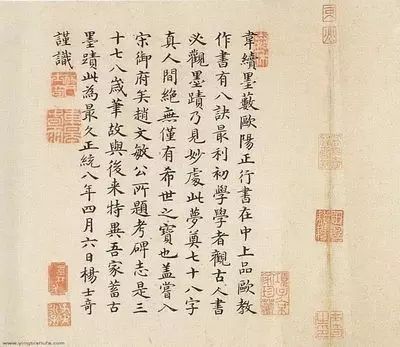 韋續墨藪歐陽正行書在中上品歐教
作書有八訣最利初學學者觀古人書
必觀墨蹟乃見妙處此夢奠七十八字
真人間絶無僅有希世之寶也蓋嘗入
宋御府矣趙文敏公所題考碑志是三
十七八歲筆故與後来特異吾家蓄古
墨蹟此為最久正統八年四月六日楊士奇
謹識
www.yingbishufa.com